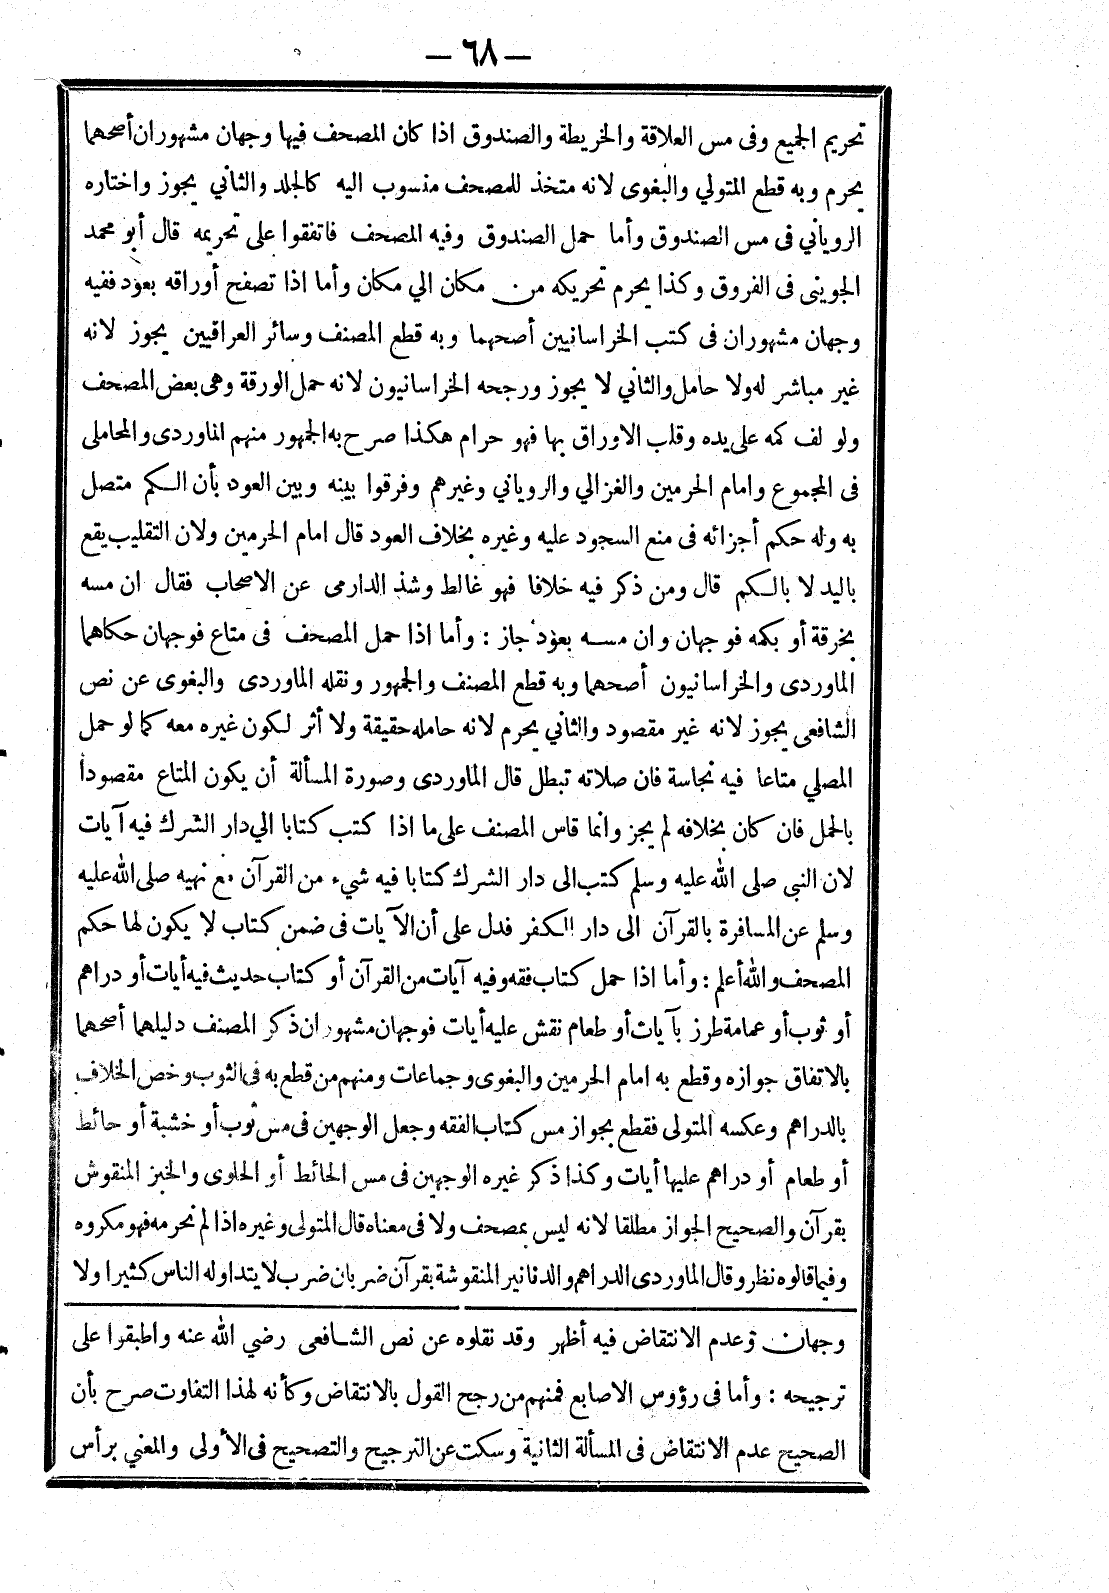 — ٦٨ —
تحريم الجميع وفى مس العلاقة والخريطة والصندوق اذا كان المصحف فيها وجهان مشهوران أصحهما
يحرم وبه قطع المتولي والبغوى لانه متخذ للمصحف منسوب اليه كالجلد والثاني يجوز واختاره
الروياني فى مس الصندوق وأما حمل الصندوق وفيه المصحف فاتفقوا على تحريمه قال أبو محمد
الجوينى فى الفروق وكذا يحرم تحريكه من مكان الي مكان وأما اذا تصفح أوراقه بعود ففيه
وجهان مشهوران فى كتب الخراسانيين أصحهما وبه قطع المصنف وسائر العراقيين يجوز لانه
غير مباشر له ولا حامل والثاني لا يجوز ورجحه الخراسانيون لانه حمل الورقة وهى بعض المصحف
ولو لف كمه على يده وقلب الاوراق بها فهو حرام هكذا صرح به الجمهور منهم الماوردى والمحاملى
فى المجموع وامام الحرمين والغزالي والروياني وغيرهم وفرقوا بينه وبين العود بأن الكم متصل
به وله حكم أجزائه فى منع السجود عليه وغيره بخلاف العود قال امام الحرمين ولان التقليب يقع
باليد لا بالكم قال ومن ذكر فيه خلافا فهو غالط وشذ الدارمى عن الاصحاب فقال ان مسه
بخرقة أو بكمه فوجهان وان مسه بعود جاز : وأما اذا حمل المصحف فى متاع فوجهان حكاهما
الماوردى والخراسانيون أصحهما وبه قطع المصنف والجمهور ونقله الماوردى والبغوى عن نص
الشافعى يجوز لانه غير مقصود والثاني يحرم لانه حامله حقيقة ولا أثر لكون غيره معه كما لو حمل
المصلي متاعا فيه نجاسة فان صلاته تبطل قال الماوردى وصورة المسألة أن يكون المتاع مقصوداً
بالحمل فان كان بخلافه لم يجز وانما قاس المصنف على ما اذا كتب كتابا الي دار الشرك فيه آيات
لان النبى صلى الله عليه وسلم كتب الى دار الشرك كتابا فيه شيء من القرآن مع نهيه صلى الله عليه
وسلم عن المسافرة بالقرآن الى دار الكفر فدل على أن الآيات فى ضمن كتاب لا يكون لها حكم
المصحف والله أعلم : وأما اذا حمل كتاب فقه وفيه آيات من القرآن أو كتاب حديث فيه أيات أو دراهم
أو ثوب أو عمامة طرز بآيات أو طعام نقش عليه أيات فوجهان مشهوران ذكر المصنف دليلهما أصحهما
بالاتفاق جوازه وقطع به امام الحرمين والبغوى وجماعات ومنهم من قطع به فى الثوب وخص الخلاف
بالدراهم وعكسه المتولى فقطع بجواز مس كتاب الفقه وجعل الوجهين فى مس ثوب أو خشبة أو حائط
أو طعام أو دراهم عليها أيات وكذا ذكر غيره الوجهين فى مس الحائط أو الحلوى والخبز المنقوش
بقرآن والصحيح الجواز مطلقا لانه ليس بمصحف ولا فى معناه قال المتولى وغيره اذا لم نحرمه فهو مكروه
وفيما قالوه نظر وقال الماوردى الدراهم والدنانير المنقوشة بقرآن ضربان ضرب لا يتداوله الناس كثيرا ولا
وجهان وعدم الانتقاض فيه أظهر وقد نقلوه عن نص الشافعى رضي الله عنه واطبقوا على
ترجيحه : وأما فى رؤوس الاصابع فمنهم من رجح القول بالانتقاض وكأنه لهذا التفاوت صرح بأن
الصحيح عدم الانتقاض فى المسألة الثانية وسكت عن الترجيح والتصحيح فى الأولى والمعني برأس